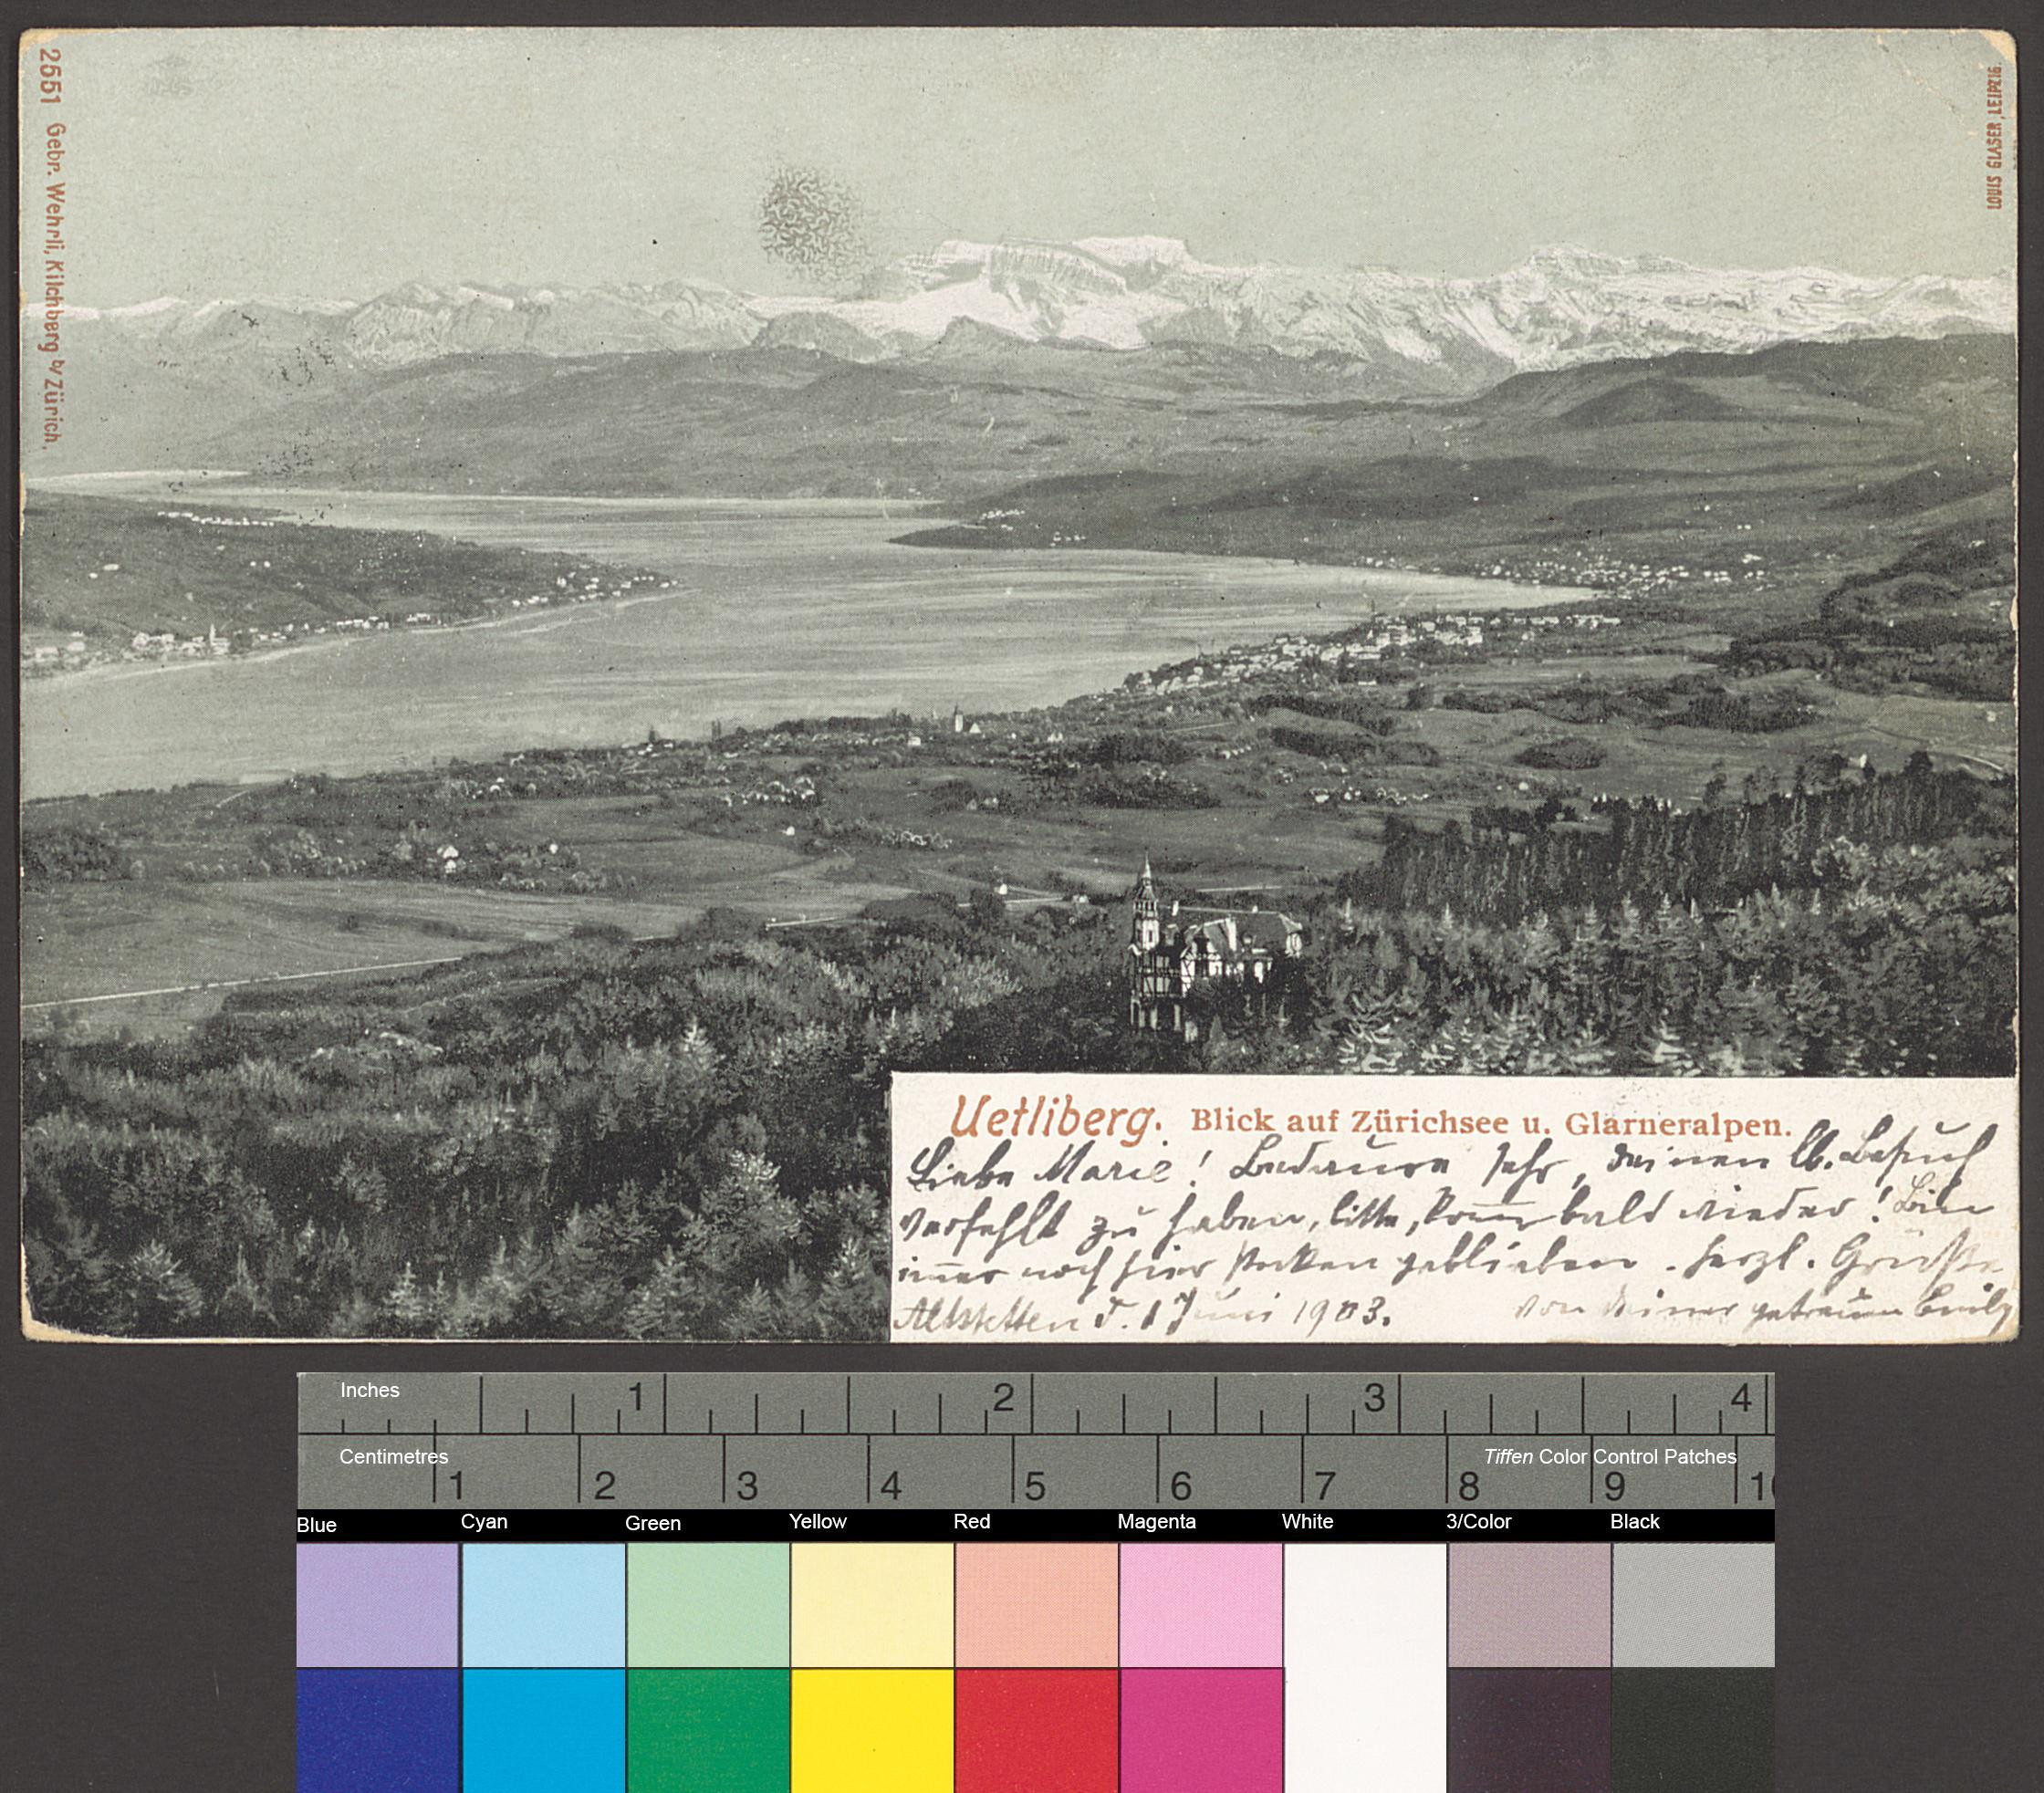 2551 Gebr. Wehrli, Kilchberg b/Zürich.
LOUIS GLASER, LEIPZIG.
Uetliberg. Blick auf Zürichsee u. Glarneralpen.
Liebe Marie! Bedaure sehr, deinen lb. Besuch
verfehlt zu haben, bitte, kom̅ bald wieder! Bin
im̅er noch hier stecken geblieben. Herzl. Grüsse
Altstetten d. 1 Juni 1903. von deiner getreuen Emily
Inches 1 2 3 4
Centimetres Tiffen Color Control Patches
1 2 3 4 5 6 7 8 9 10
Blue Cyan Green Yellow Red Magenta White 3/Color Black